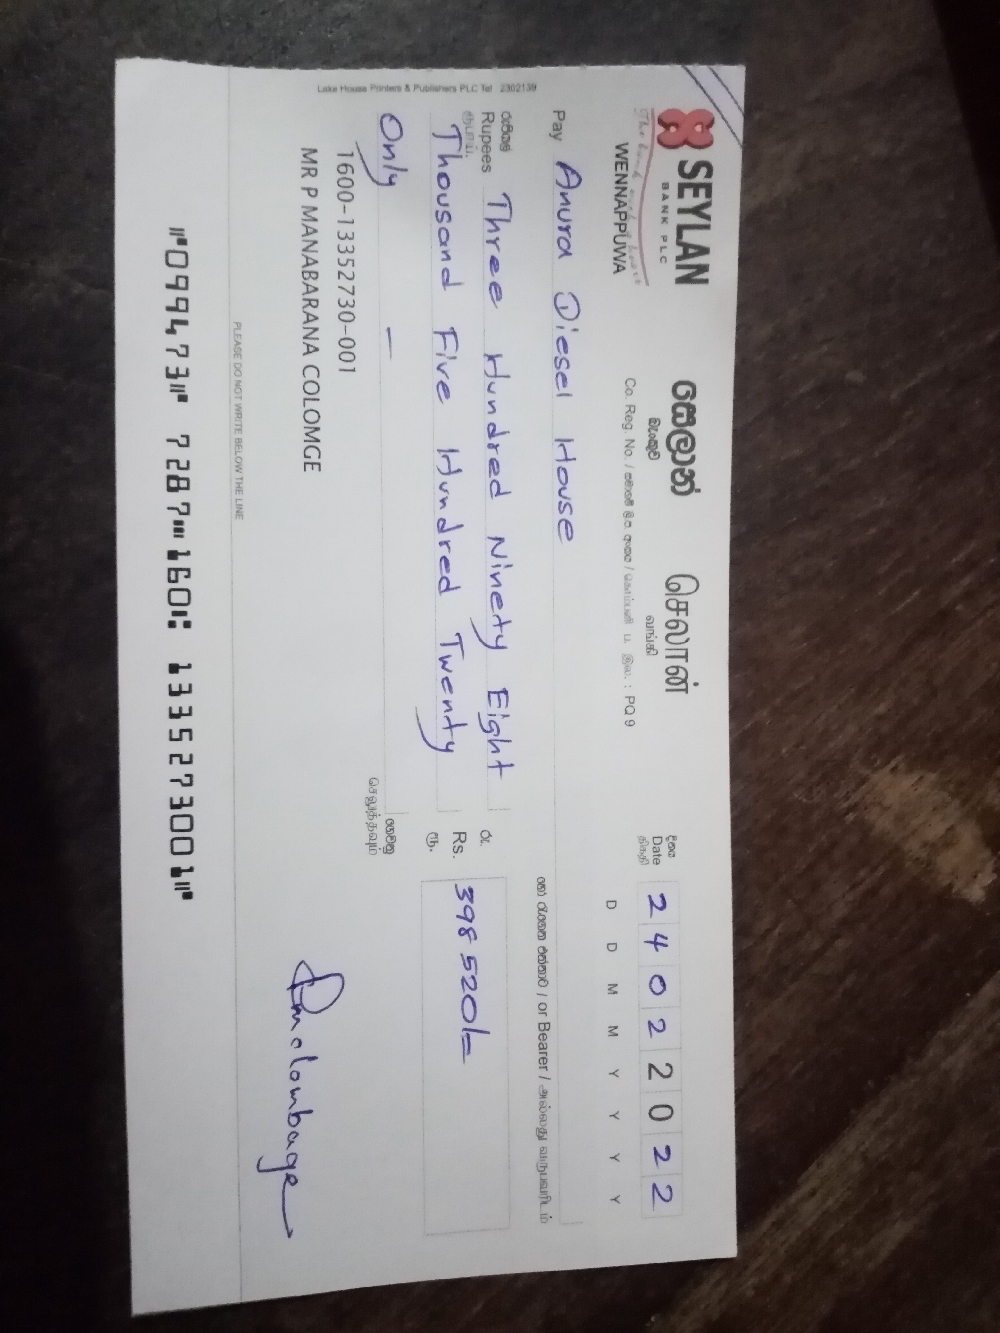 SEYLAN
BANK PLC
සෙලාන්
බැංකුව
செலான்
வங்கி
The bank with a heart
WENNAPPUWA
Co. Reg. No. / : PQ 9
දිනය
Date
திகதி
2 4 0 2 2 0 2 2
D D M M Y Y Y Y
Pay Anura Diesel House
හෝ රැගෙන එන්නාට / or Bearer / அல்லது
රුපියල්
Rupees
ரூபாய்
Three Hundred Ninerty Eight
Thousand Five Hundred Twenty
Only —
රු.
Rs.
ரூ.
398 520/=
ගෙවනු
செலுத்தவும்
1600-13352730-001
MR P MANABARANA COLOMGE
Pmclombage
PLEASE DO NOT WRITE BELOW THE LINE
⑈099473⑈ 7287⑉160⑆ 133527300 1⑈
Lake House Printers & Publishers PLC Tel 2302139